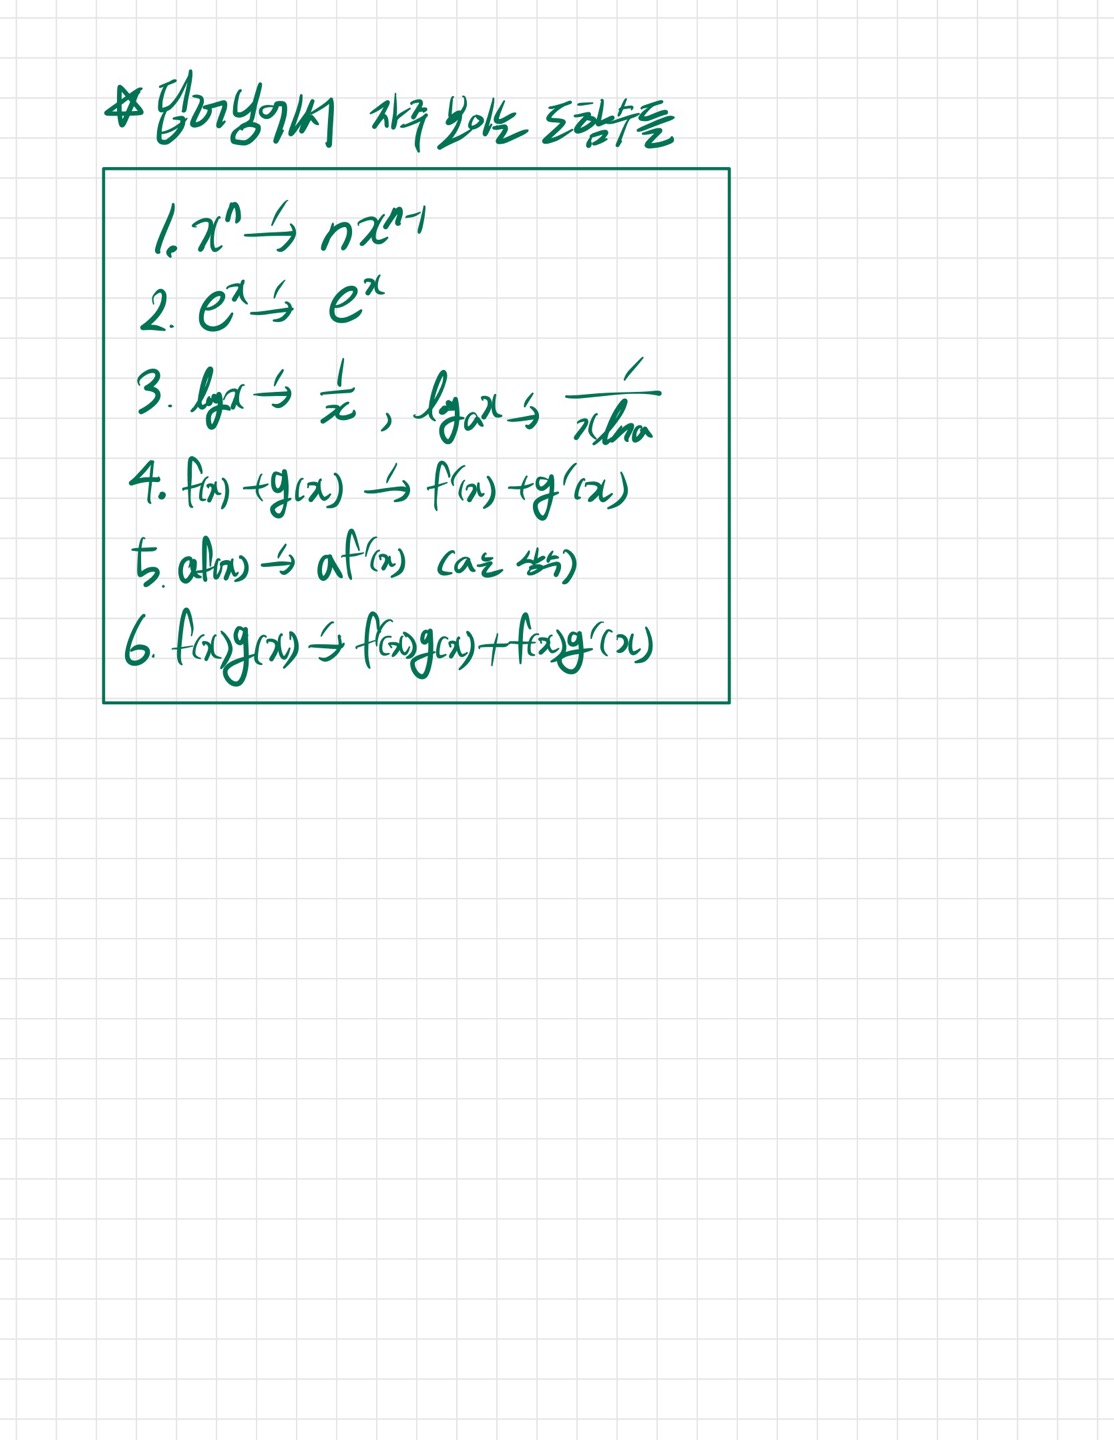 ☆ 딥러닝에서 자주 보이는 도함수들
1. xⁿ →′ nxⁿ⁻¹
2. eˣ →′ eˣ
3. logx →′ 1/x , logₐx →′ 1/(xlna)
4. f(x)+g(x) →′ f′(x)+g′(x)
5. af(x) →′ af′(x) (a는 상수)
6. f(x)g(x) →′ f′(x)g(x)+f(x)g′(x)